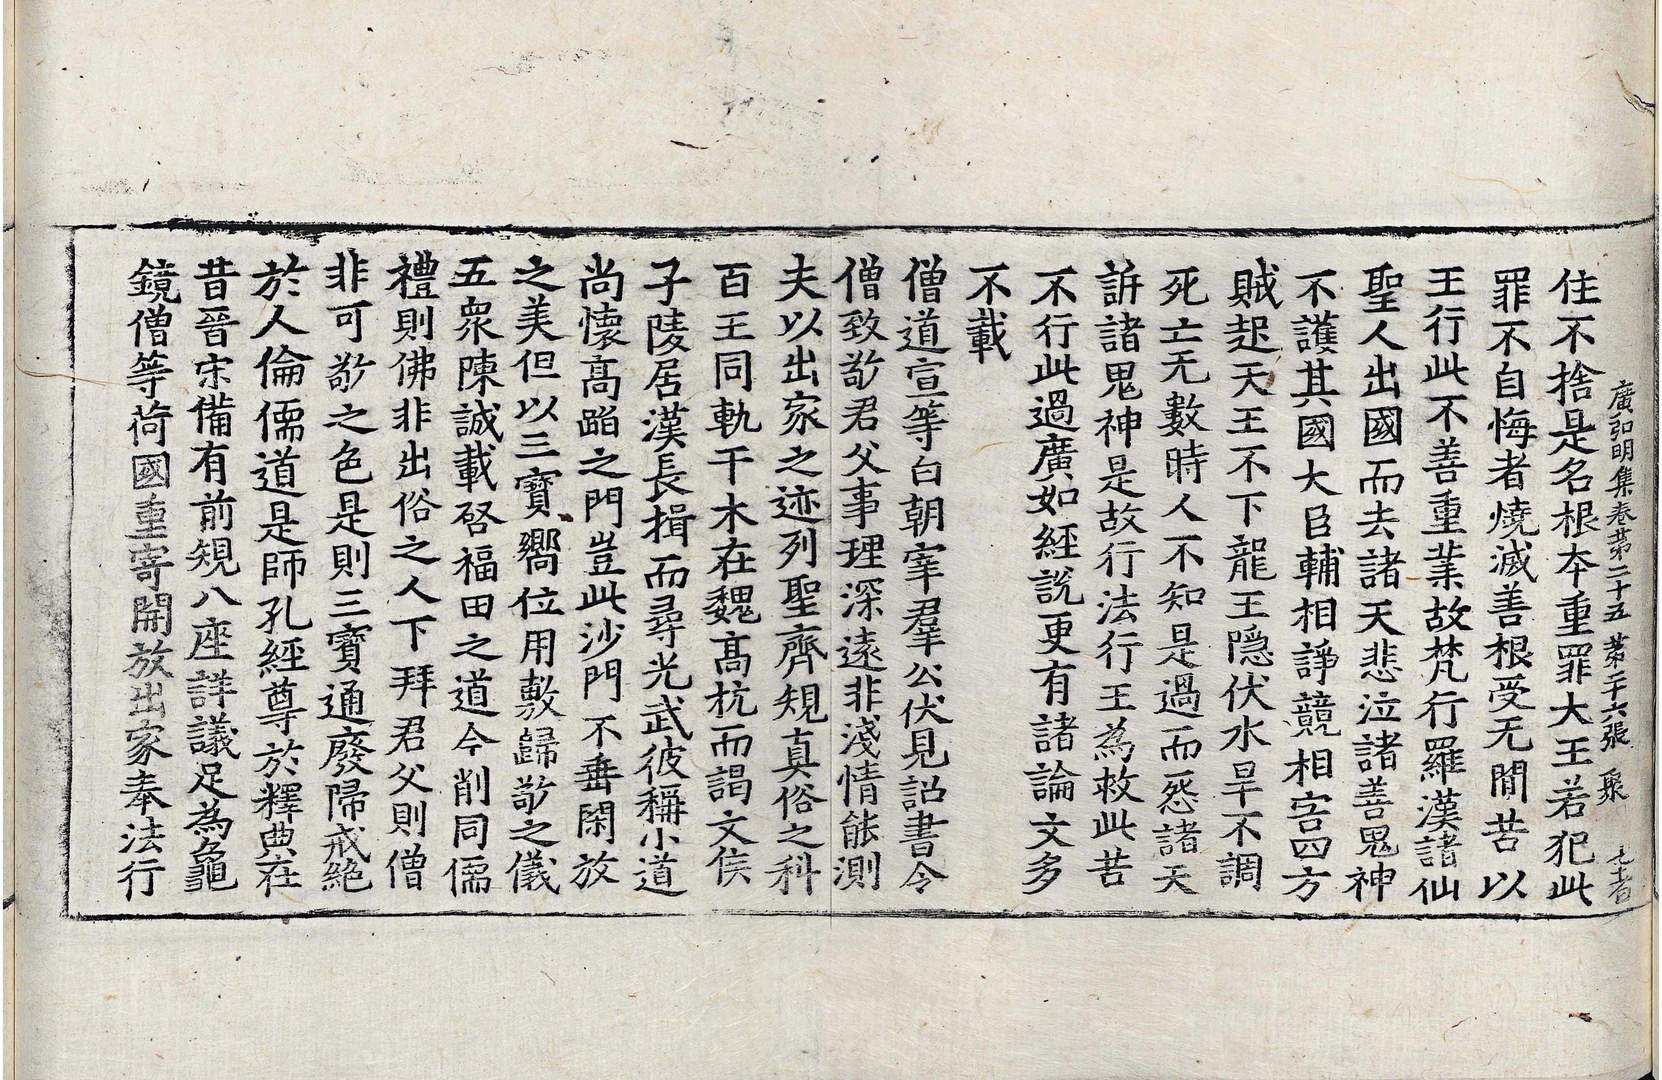 廣弘明集卷苐二十五 苐二十六張 聚
住不捨是名根夲重罪大王若犯此
罪不自悔者燒滅善根受无間苦以
王行此不善重業故梵行羅漢諸仙
聖人出國而去諸天悲泣諸善鬼神
不護其國大臣輔相諍競相害四方
賊起天王不下龍王隱伏水旱不調
死亡无數時人不知是過而怨諸天
訴諸鬼神是故行法行王為救此苦
不行此過廣如經說更有諸論文多
不載
僧道宣等白朝宰羣公伏見詔書令
僧致敬君父事理深遠非淺情能測
夫以出家之迹列聖齊規真俗之科
百王同軌干木在魏髙抗而謁文侯
子陵居漢長揖而尋光武彼稱小道
尚懷髙蹈之門豈此沙門不垂閑放
之美但以三寶嚮位用敷歸敬之儀
五衆陳誠載啓福田之道今削同儒
禮則佛非出俗之人下拜君父則僧
非可敬之色是則三寶通廢歸戒絶
於人倫儒道是師孔經尊於釋典在
昔晉宋備有前規八座詳議足為龜
鏡僧等荷國重寄開放出家奉法行